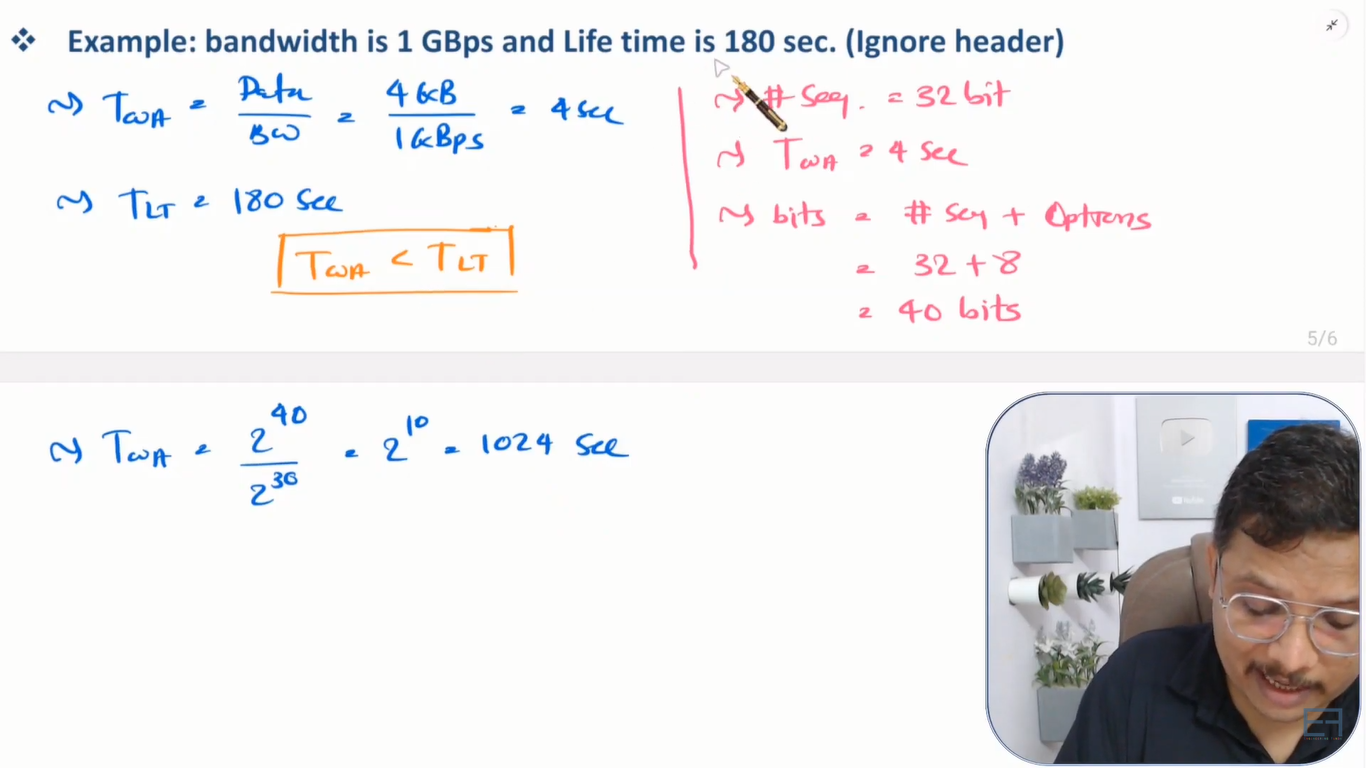 ❖ Example: bandwidth is 1 GBps and Life time is 180 sec. (Ignore header)
~) TWA = Data / BW = 4 GB / 1 GBps = 4 sec
~) TLT = 180 sec
TWA < TLT
~) # Seq. = 32 bit
~) TWA = 4 sec
~) bits = # Seq + Options
= 32 + 8
= 40 bits
5/6
~) TWA = 2^40 / 2^30 = 2^10 = 1024 sec